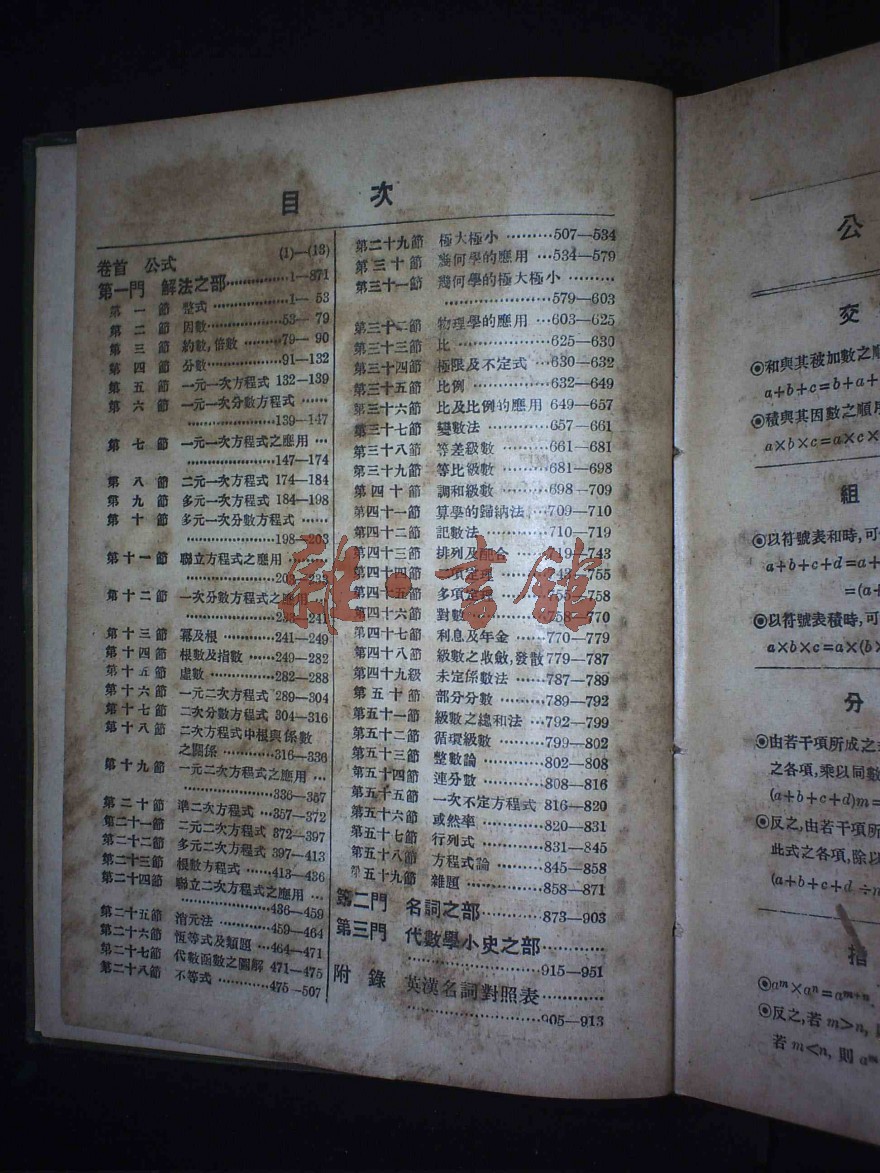 目 次
卷首 公式 (1)—(13)
第一門 解法之部……………1—871
第一節 整式………………1—53
第二節 因數………………53—79
第三節 約數,倍數………79—90
第四節 分數………………91—132
第五節 一元一次方程式 132—139
第六節 一元一次分數方程式……
………………139—147
第七節 一元一次方程式之應用…
………………147—174
第八節 二元一次方程式 174—184
第九節 多元一次方程式 184—198
第十節 多元一次分數方程式……
………………198—203
第十一節 聯立方程式之應用………
………………203—233
第十二節 一次分數方程式之應用…
………………233—241
第十三節 冪及根………241—249
第十四節 根數及指數……249—282
第十五節 虛數…………282—288
第十六節 一元二次方程式 289—304
第十七節 二次分數方程式 304—316
第十八節 二次方程式中根與係數
之關係………316—336
第十九節 一元二次方程式之應用…
………………336—357
第二十節 準二次方程式…357—372
第二十一節 二元二次方程式 372—397
第二十二節 多元二次方程式 397—413
第二十三節 根數方程式……413—436
第二十四節 聯立二次方程式之應用…
………………436—459
第二十五節 消元法…………459—464
第二十六節 恆等式及類題…464—471
第二十七節 代數函數之圖解 471—475
第二十八節 不等式…………475—507
第二十九節 極大極小………507—534
第三十節 幾何學的應用…534—579
第三十一節 幾何學的極大極小………
………………579—603
第三十二節 物理學的應用…603—625
第三十三節 比……………625—630
第三十四節 極限及不定式…630—632
第三十五節 比例…………632—649
第三十六節 比及比例的應用 649—657
第三十七節 變數法…………657—661
第三十八節 等差級數………661—681
第三十九節 等比級數………681—698
第四十節 調和級數………698—709
第四十一節 算學的歸納法…709—710
第四十二節 記數法…………710—719
第四十三節 排列及配合……719—743
第四十四節 二項定理………743—755
第四十五節 多項定理………755—758
第四十六節 對數……………758—770
第四十七節 利息及年金……770—779
第四十八節 級數之收斂,發散 779—787
第四十九級 未定係數法……787—789
第五十節 部分分數………789—792
第五十一節 級數之總和法…792—799
第五十二節 循環級數………799—802
第五十三節 整數論…………802—808
第五十四節 連分數…………808—816
第五十五節 一次不定方程式 816—820
第五十六節 或然率…………820—831
第五十七節 行列式…………831—845
第五十八節 方程式論………845—858
第五十九節 雜題……………858—871
第二門 名詞之部…………873—903
第三門 代數學小史之部…………
………………915—951
附錄 英漢名詞對照表…………
………………905—913
雜·書館
公
交
◎和與其被加數之順
a+b+c=b+a+
◎積與其因數之順序
a×b×c=a×c×
組
◎以符號表和時,可
a+b+c+d=a+
=(a+
◎以符號表積時,可
a×b×c=a×(b×
分
◎由若干項所成之
之各項,乘以同數
(a+b+c+d)m=
◎反之,由若干項所
此式之各項,除以
(a+b+c+d)÷
指
◎aᵐ×aⁿ=aᵐ⁺ⁿ
◎反之,若 m>n,
若 m<n, 則 aᵐ